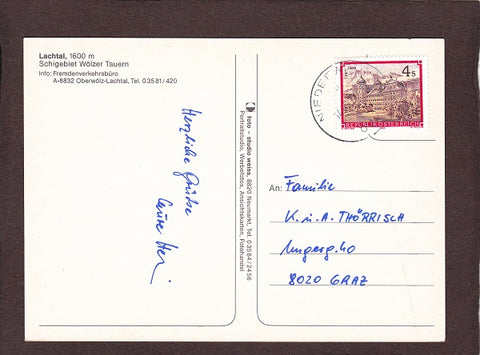 Lachtal, 1600 m
Schigebiet Wölzer Tauern
Info: Fremdenverkehrsbüro
A-8832 Oberwölz-Lachtal, Tel. 0 35 81 / 420
Herzliche Grüße
foto - studio weiss, 8820 Neumarkt, Tel. 0 35 84 / 24 56
Portraitstudio, Werbefotos, Ansichtskarten, Fotohandel
4 S
REPUBLIK ÖSTERREICH
An: Familie
K. u. A. THÖRRISCH
Ungerg. 40
8020 GRAZ